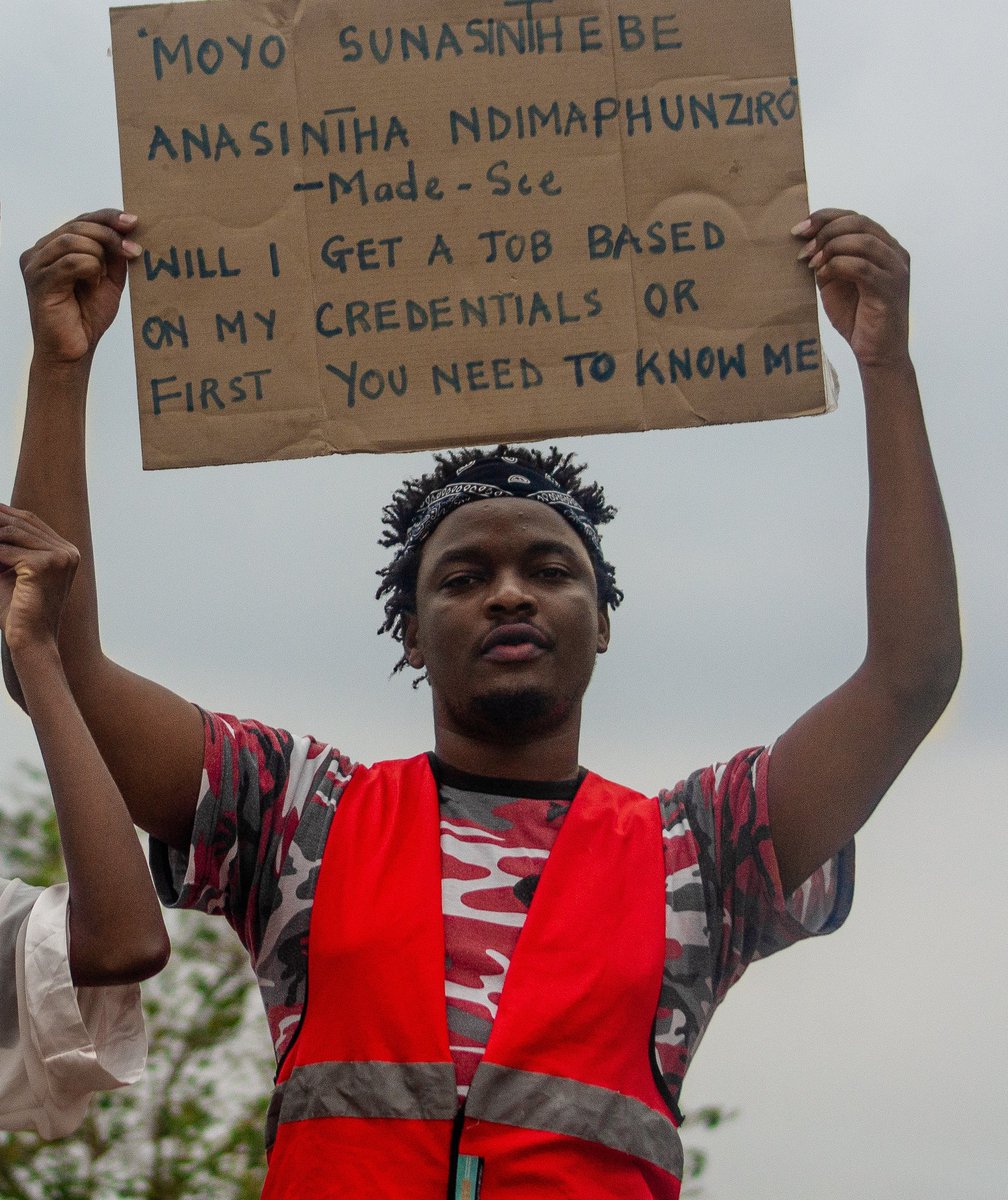 "MOYO SUNASINTHEBE
ANASINTHA NDIMAPHUNZIRO"
-Made-See
WILL I GET A JOB BASED
ON MY CREDENTIALS OR
FIRST YOU NEED TO KNOW ME